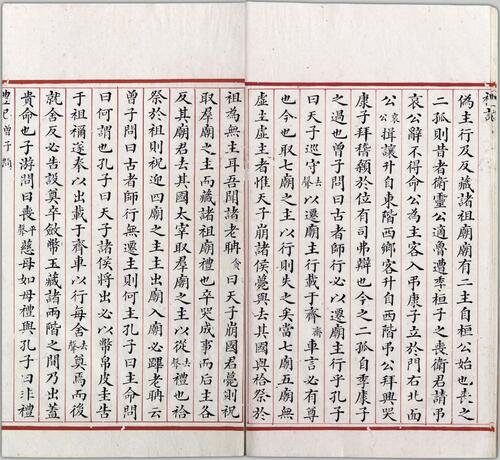 禮記
偽主行及反藏諸祖廟廟有二主自桓公始也喪之
二孤則昔者衛靈公適魯遭季桓子之喪衛君請弔
哀公辭不得命公為主客入弔康子立於門右北面
公哀公揖讓升自東階西鄉客升自西階弔公拜興哭
康子拜稽顙於位有司弗辯也今之二孤自季康子
之過也曾子問曰古者師行必以遷廟主行乎孔子
曰天子巡守去聲以遷廟主行載于齊齋車言必有尊
也今也取七廟之主以行則失之矣當七廟五廟無
虛主虛主者惟天子崩諸侯薨與去其國與祫祭於
祖為無主耳吾聞諸老聃貪曰天子崩國君薨則祝
取羣廟之主而藏諸祖廟禮也卒哭成事而后主各
反其廟君去其國太宰取羣廟之主以從去聲禮也祫
祭於祖則祝迎四廟之主主出廟入廟必蹕老聃云
曾子問曰古者師行無遷主則何主孔子曰主命問
曰何謂也孔子曰天子諸侯將出必以幣帛皮圭告
于祖禰遂奉以出載于齊車以行每舍去聲奠焉而後
就舍反必告設奠卒斂幣玉藏諸兩階之間乃出蓋
貴命也子游問曰喪平聲慈母如母禮與孔子曰非禮
禮記 曾子問